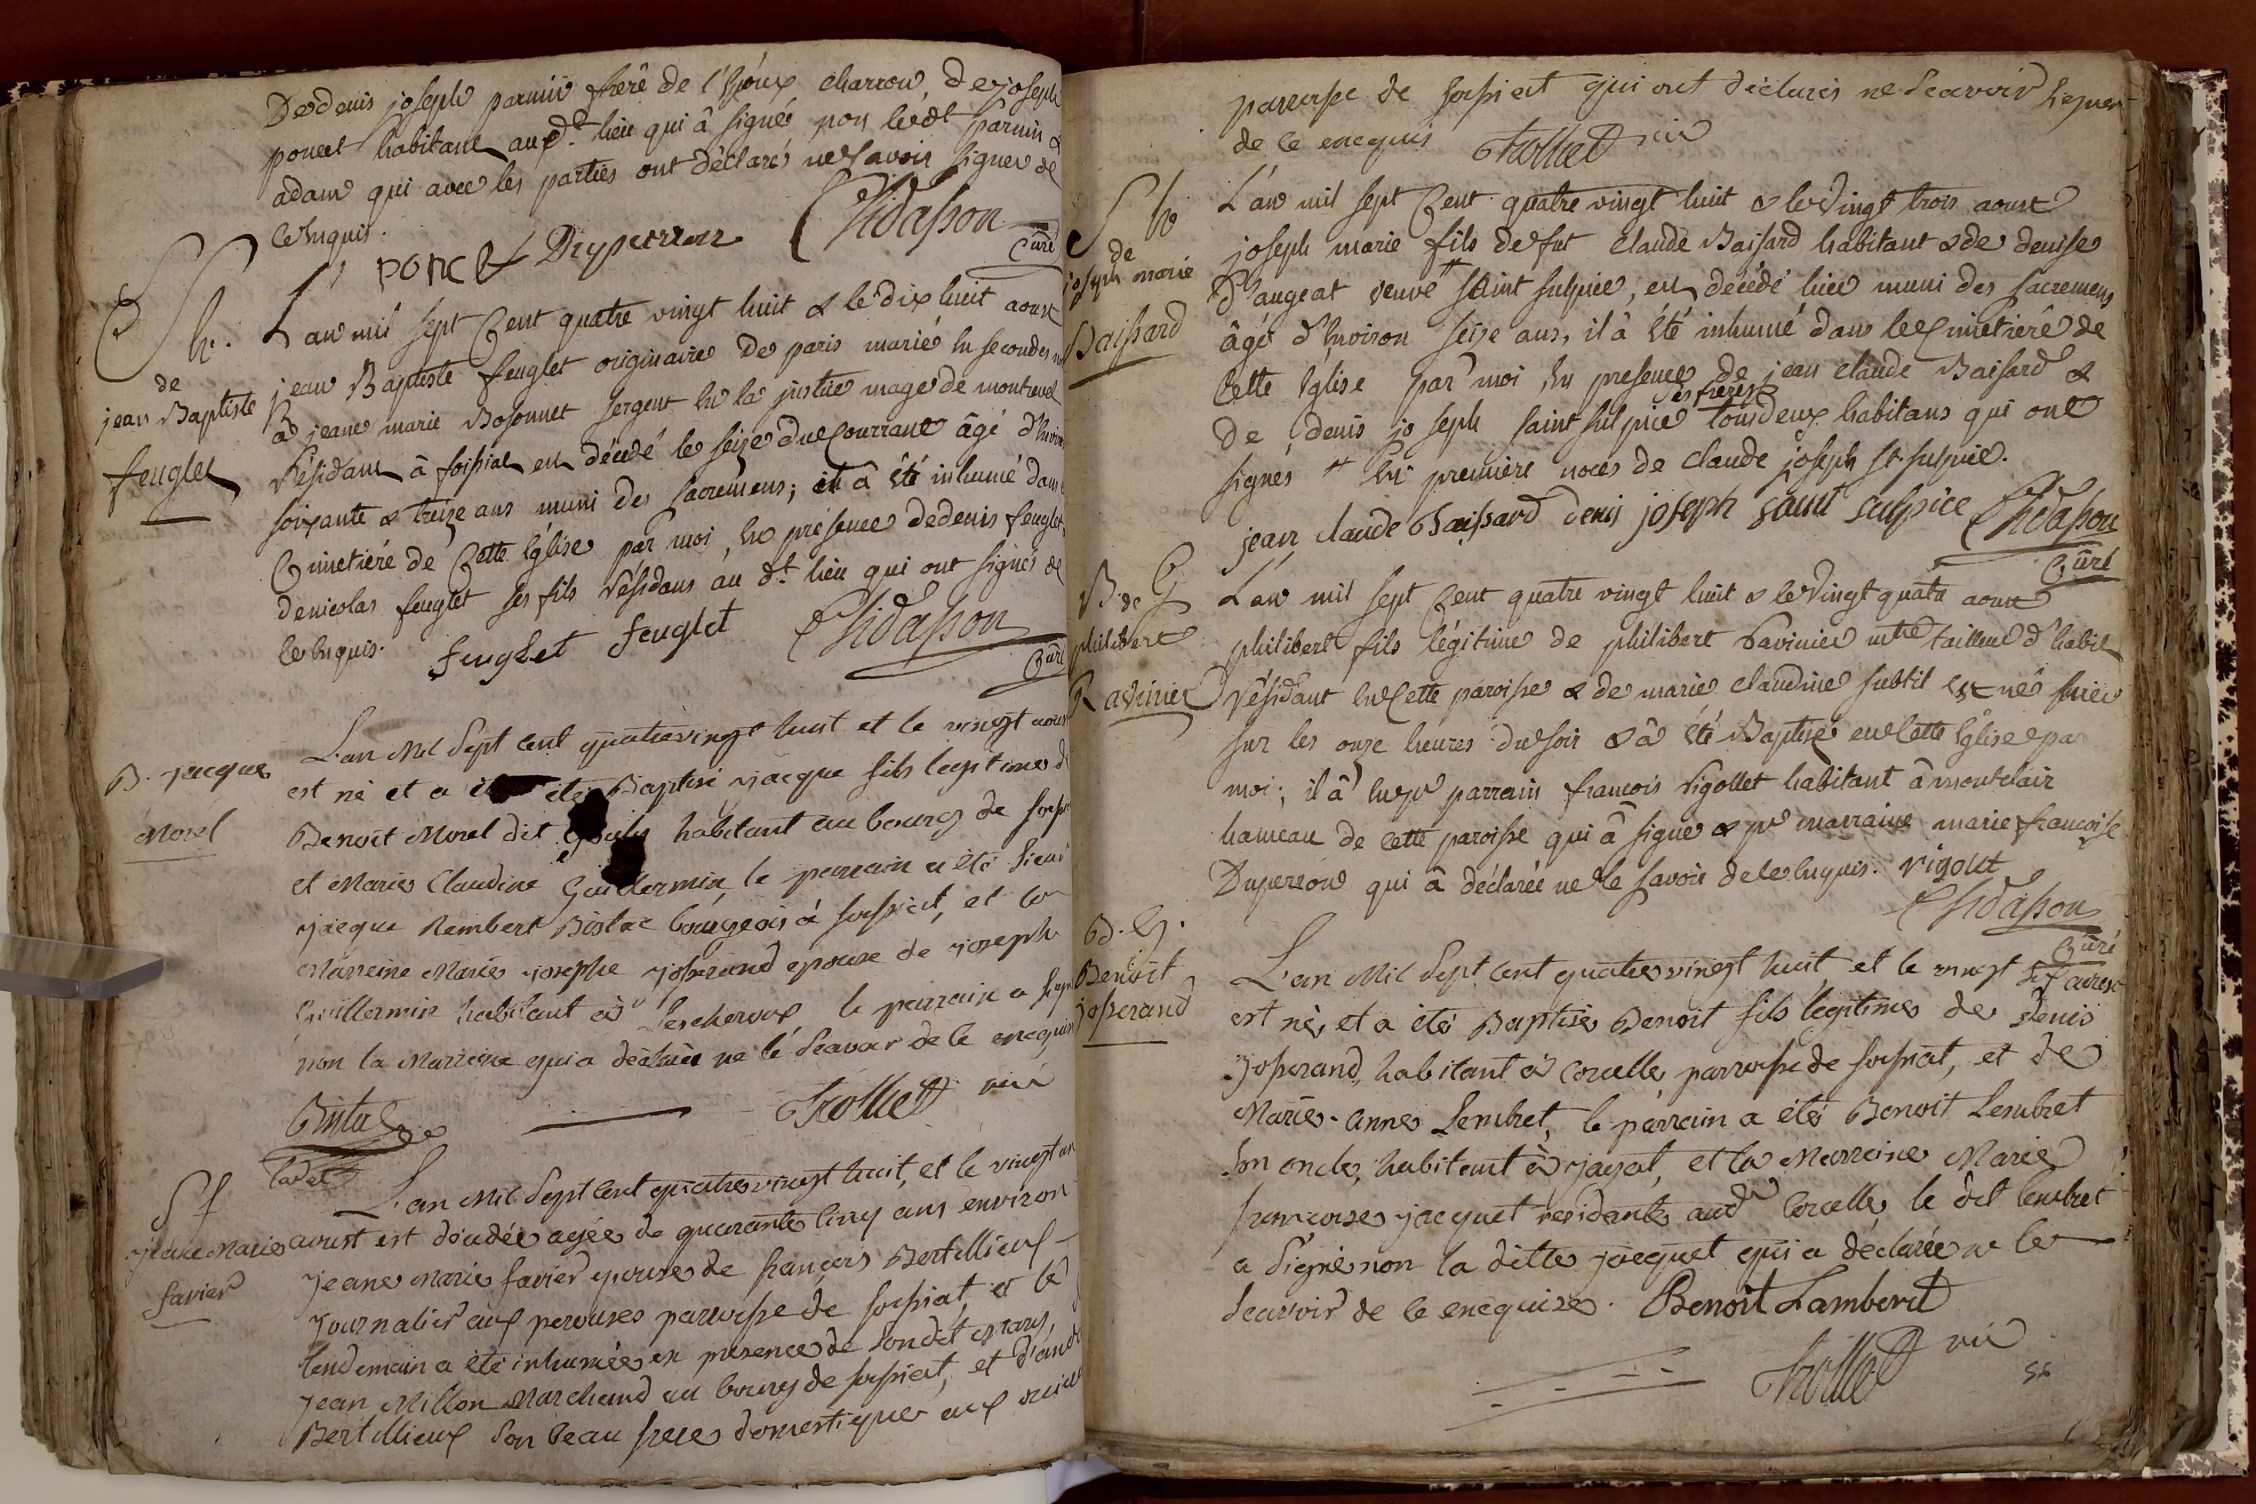 De denis joseph parmin frere de l'Epoux charron, de joseph
poncet habitant aud.t lieu qui â signé non led.t parmin &
adam qui avec les parties ont déclaré ne savoir signer de
ce Enquis.
poncet Duperron Chidasson
Curé
Sh.
de
jean Baptiste
feuglet
L'an mil sept Cent quatre vingt huit & le dix huit aoust
jean Baptiste feuglet originaire de paris marié En secondes
â jeane marie Bosonnet sergent En la justice mage de montrevel
Résidant â foissiat est décédé le seize du Courrant âgé d'Environ
soixante & treize ans muni des sacremens; il â Eté inhumé dans
Cimetiére de Cette Eglise par moi, En présence de denis feuglet,
de nicolas feuglet ses fils résidans au d.t lieu qui ont signés de
ce Enquis. feuglet feuglet Chidasson
Curé
B. jacque
Morel
L'an Mil Sept cent quatrevingt huit et le vingt aoust
est né et a été Baptisé jacque fils legitime d
Benoit Morel dit habitant au bourg de
et Marie Claudine Guillermin, le parrain a été Sieur
jacque Rembert Bistac bourgeois â foissiat, et la
Marreine Marie josephe josserand epouse de joseph
Guillermin habitant à Lescheroux le parrain a signé
non la Marreine qui a déclarée ne le Scavoir de le enequise
Trollet vic
Cadet
Sf
jeane Marie
favier
L'an Mil Sept cent quatrevingt huit, et le vingt un
aoust est décedée agée de quarante cinq ans environ
jeane Marie favier epouse de françois Bertillieux
journalier aux perouses parroisse de foissiat, et le
lendemain a été inhumée en presence de Son dit mary,
jean Millon Marchand au bourg de foissiat, et d'andré
Bertillieux Son beau frere domestique aux
parroisse de foissiat qui ont déclarés ne Scavoir signer
de le enequis Trollet vic
Sh
de
joseph marie
Baissard
L'an mil sept Cent quatre vingt huit & le Vingt trois aoust
joseph marie fils de fut Claude Baisard habitant & de denise
D'augeat veuve # saint sulpice, est décédé hier muni des sacremens
âgé d'Environ seize ans, il â Eté inhumé dans le Cimetiére de
Cette Eglise par moi En presence de jean claude Baisard &
ses freres
de denis joseph saint sulpice tous deux habitans qui ont
signés # En premiere noces de claude joseph st sulpice.
jean claude Baissard denis joseph saint sulpice Chidasson
Curé
B de G
philibert
Ravinier
L'an mil sept Cent quatre vingt huit & le Vingt quatre aoust
philibert fils légitime de philibert Ravinier m.tre tailleur d'habit
Résidant En Cette paroisse & de marie claudine subtil est né hier
sur les onze heures du soir & â Eté Baptisé en Cette Eglise par
moi; il â Eu pr parrain francois Rigollet habitant â montclair
hameau de cette paroisse qui â signé & pr marraine marie francoise
Duperron qui â déclarée ne le savoir de ce Enquis. rigolet
Chidasson
Curé
B. G.
Benoit
josserand
L'an Mil Sept cent quatrevingt huit et le vingt six aoust
est né, et a été Baptisé Benoit fils legitime de Denis
josserand, habitant à Corcelle parroisse de foissiat, et de
Marie-Anne Lembret, le parrain a été Benoit Lembret
Son oncle, habitant à jayat, et la Marreine Marie
francoise jacquet residante aud.t Corcelle, le dit Lembret
a Signé non la ditte jacquet qui a déclarée ne le
Scavoir de le enequise. Benoit Lamberet
Trollet vic